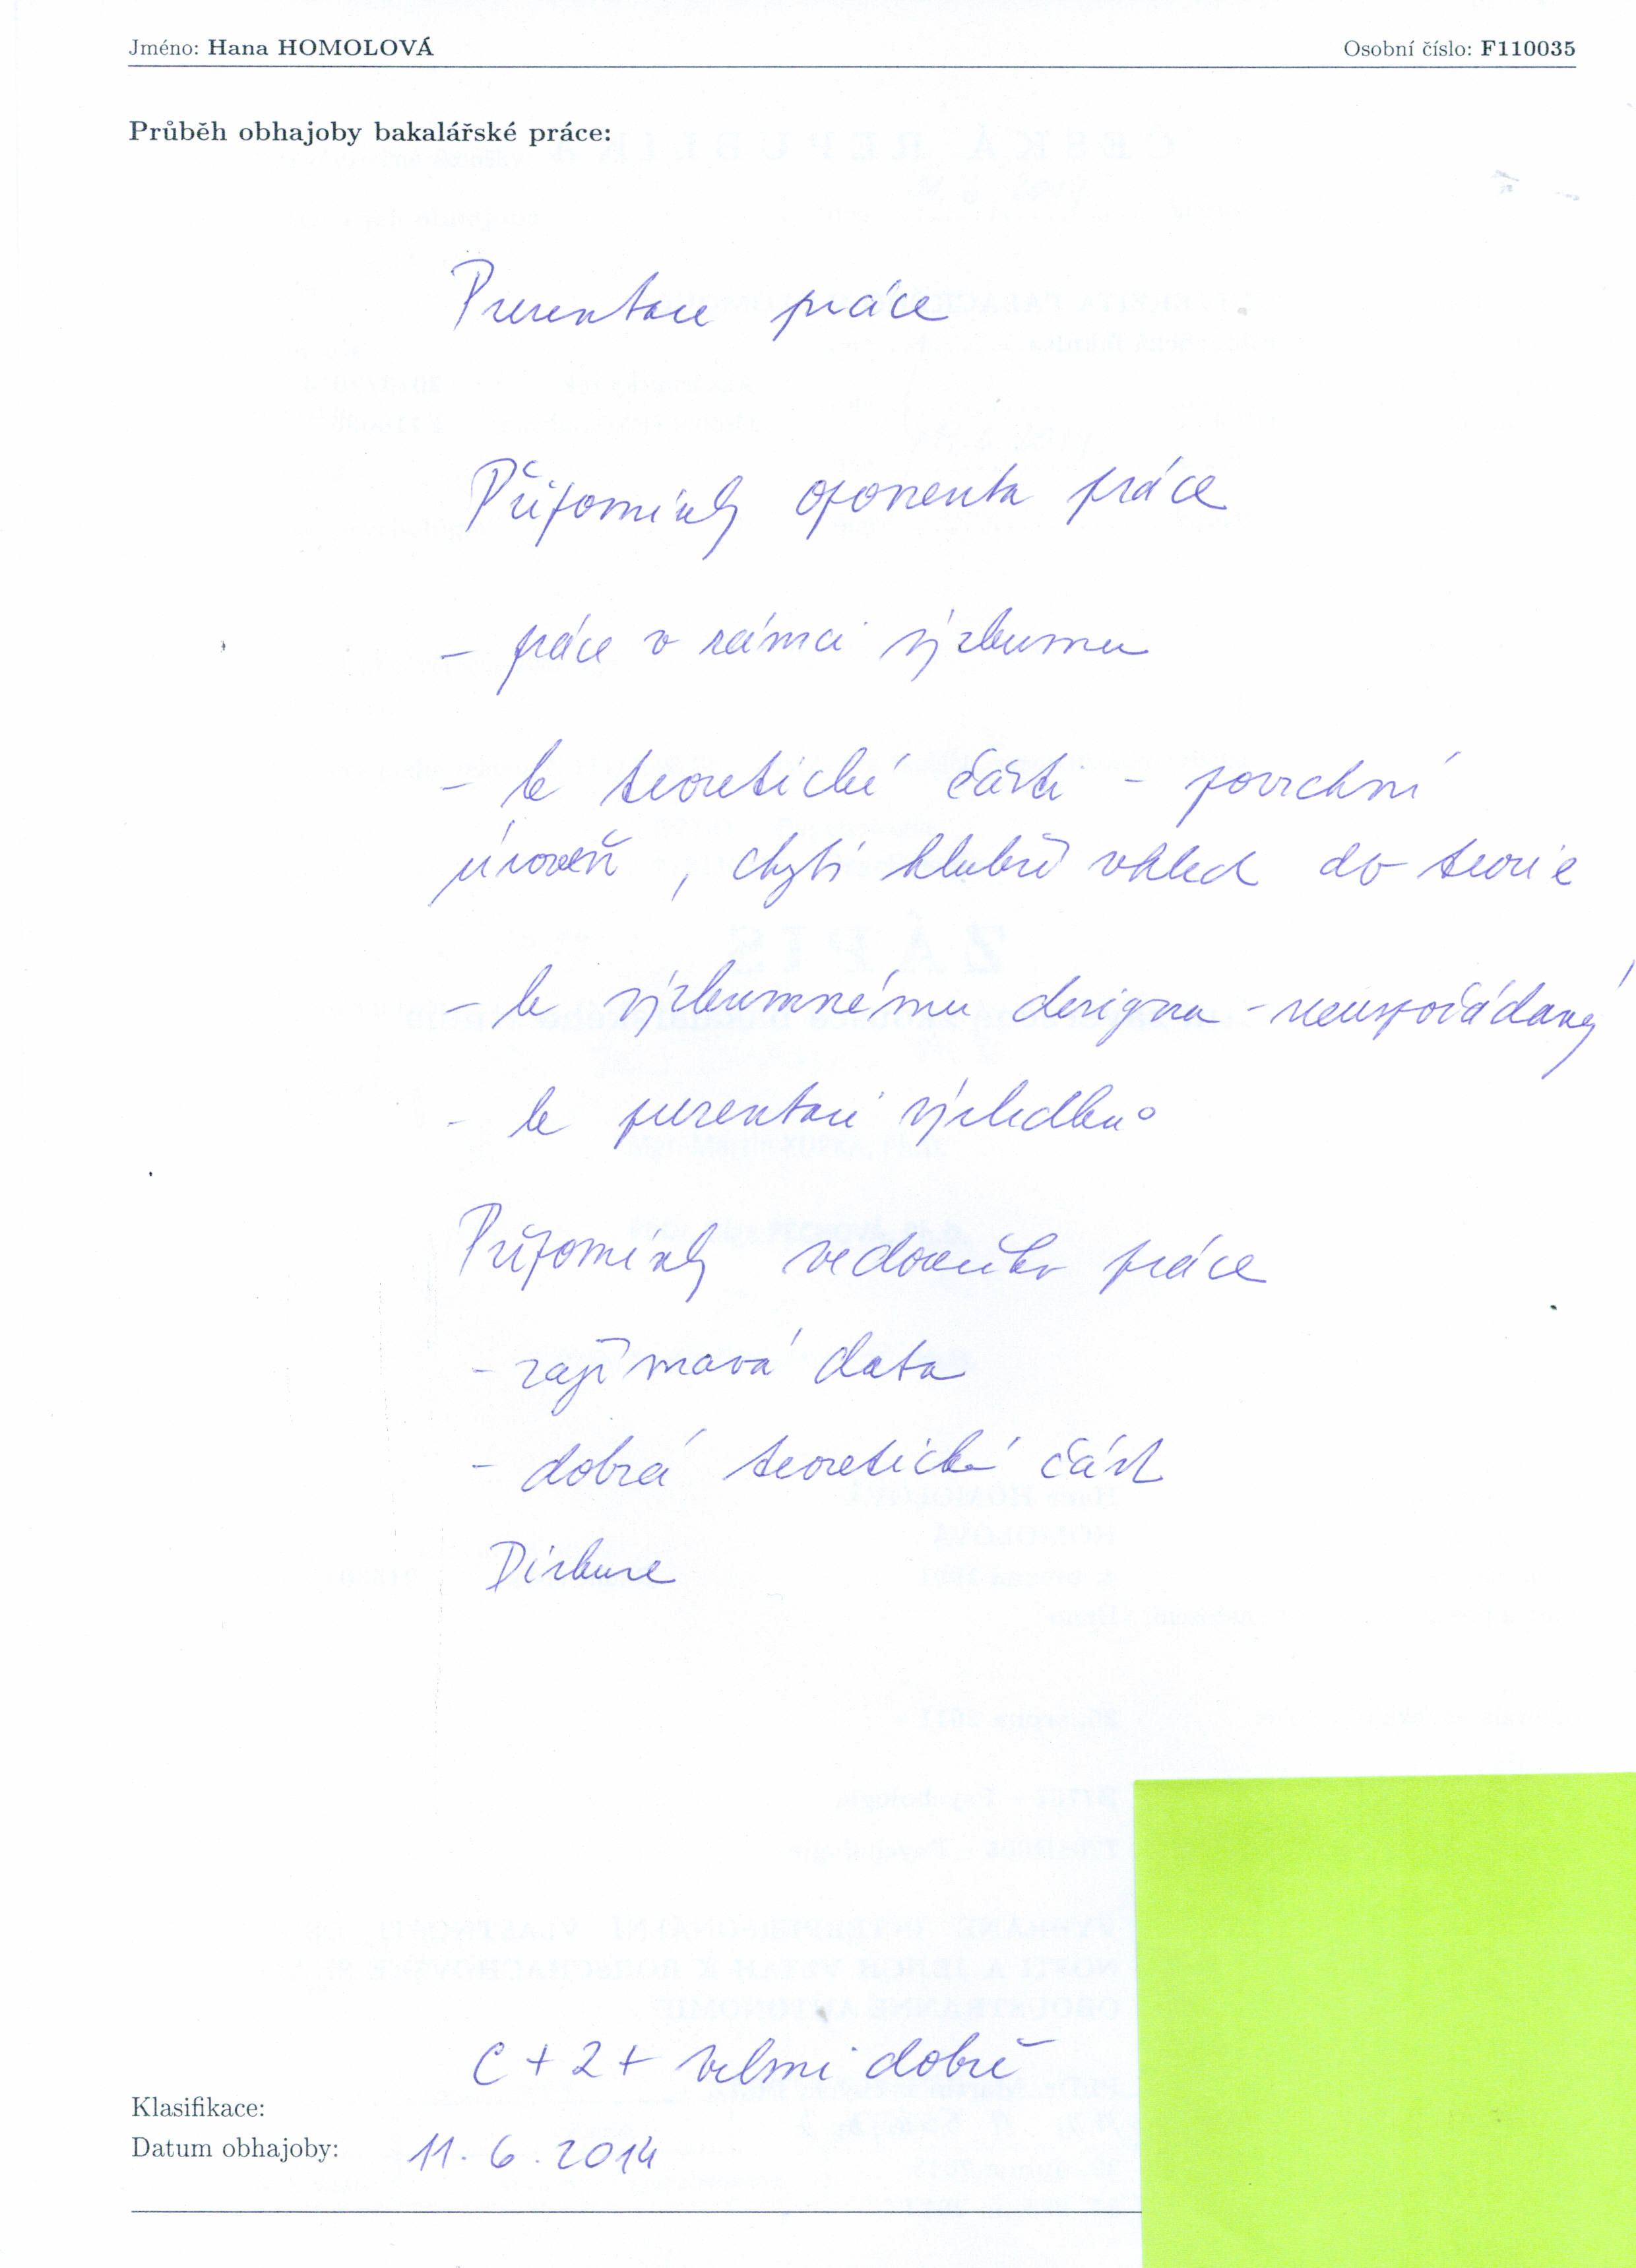 Jméno: Hana HOMOLOVÁ Osobní číslo: F110035
Průběh obhajoby bakalářské práce:
Prezentace práce
Připomínky oponenta práce
- práce v rámci výzkumu
- k teoretické části - povrchní
úroveň, chybí hlubší vhled do teorie
- k výzkumnému designu - neuspořádaný
- k prezentaci výsledků
Připomínky vedoucího práce
- zajímavá data
- dobrá teoretická část
Diskuse
C + 2 + velmi dobře
Klasifikace:
Datum obhajoby: 11. 6. 2014